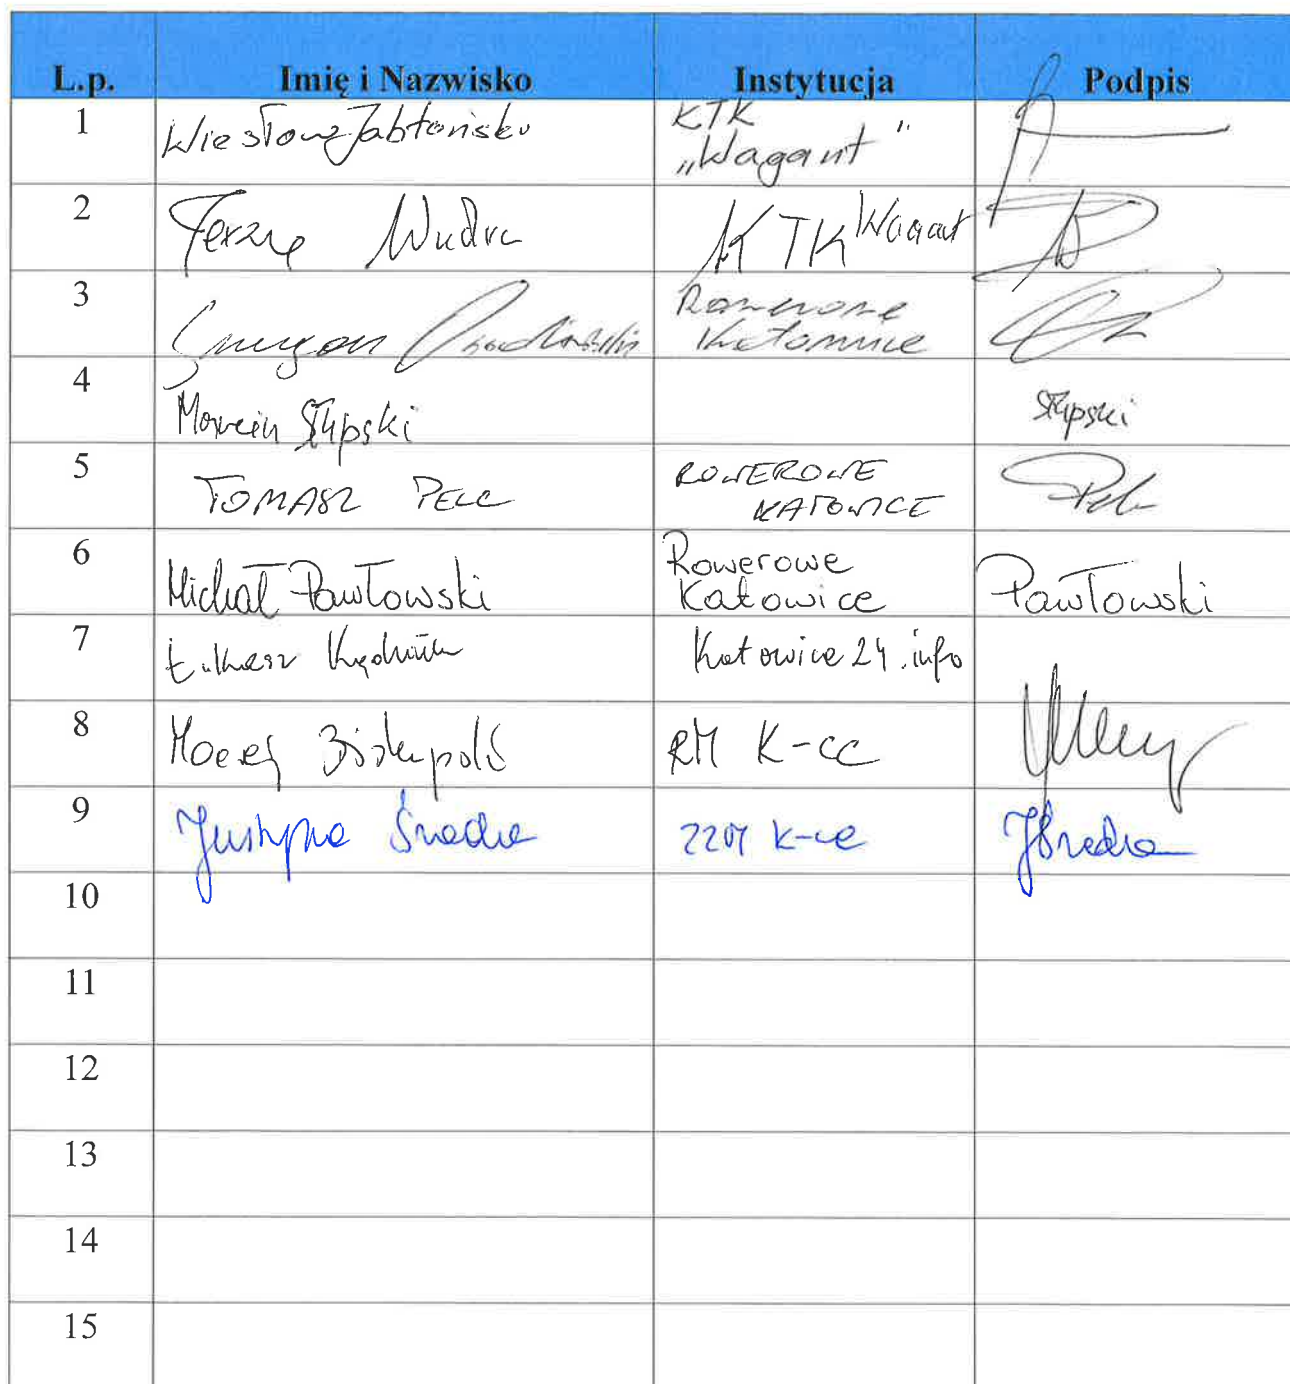 L.p. Imię i Nazwisko Instytucja Podpis
1 Wiesława Jabłońska KTK
„Wagant"
2 Jerzy Wudra KTK Wagant
3 Rowerowe
Katowice
4 Marcin Słupski Słupski
5 TOMASZ PELC ROWEROWE
KATOWICE
6 Michał Pawłowski Rowerowe
Katowice Pawłowski
7 Łukasz Katowice24.info
8 RM K-ce
9 Justyna Średra K-ce JŚredra
10
11
12
13
14
15